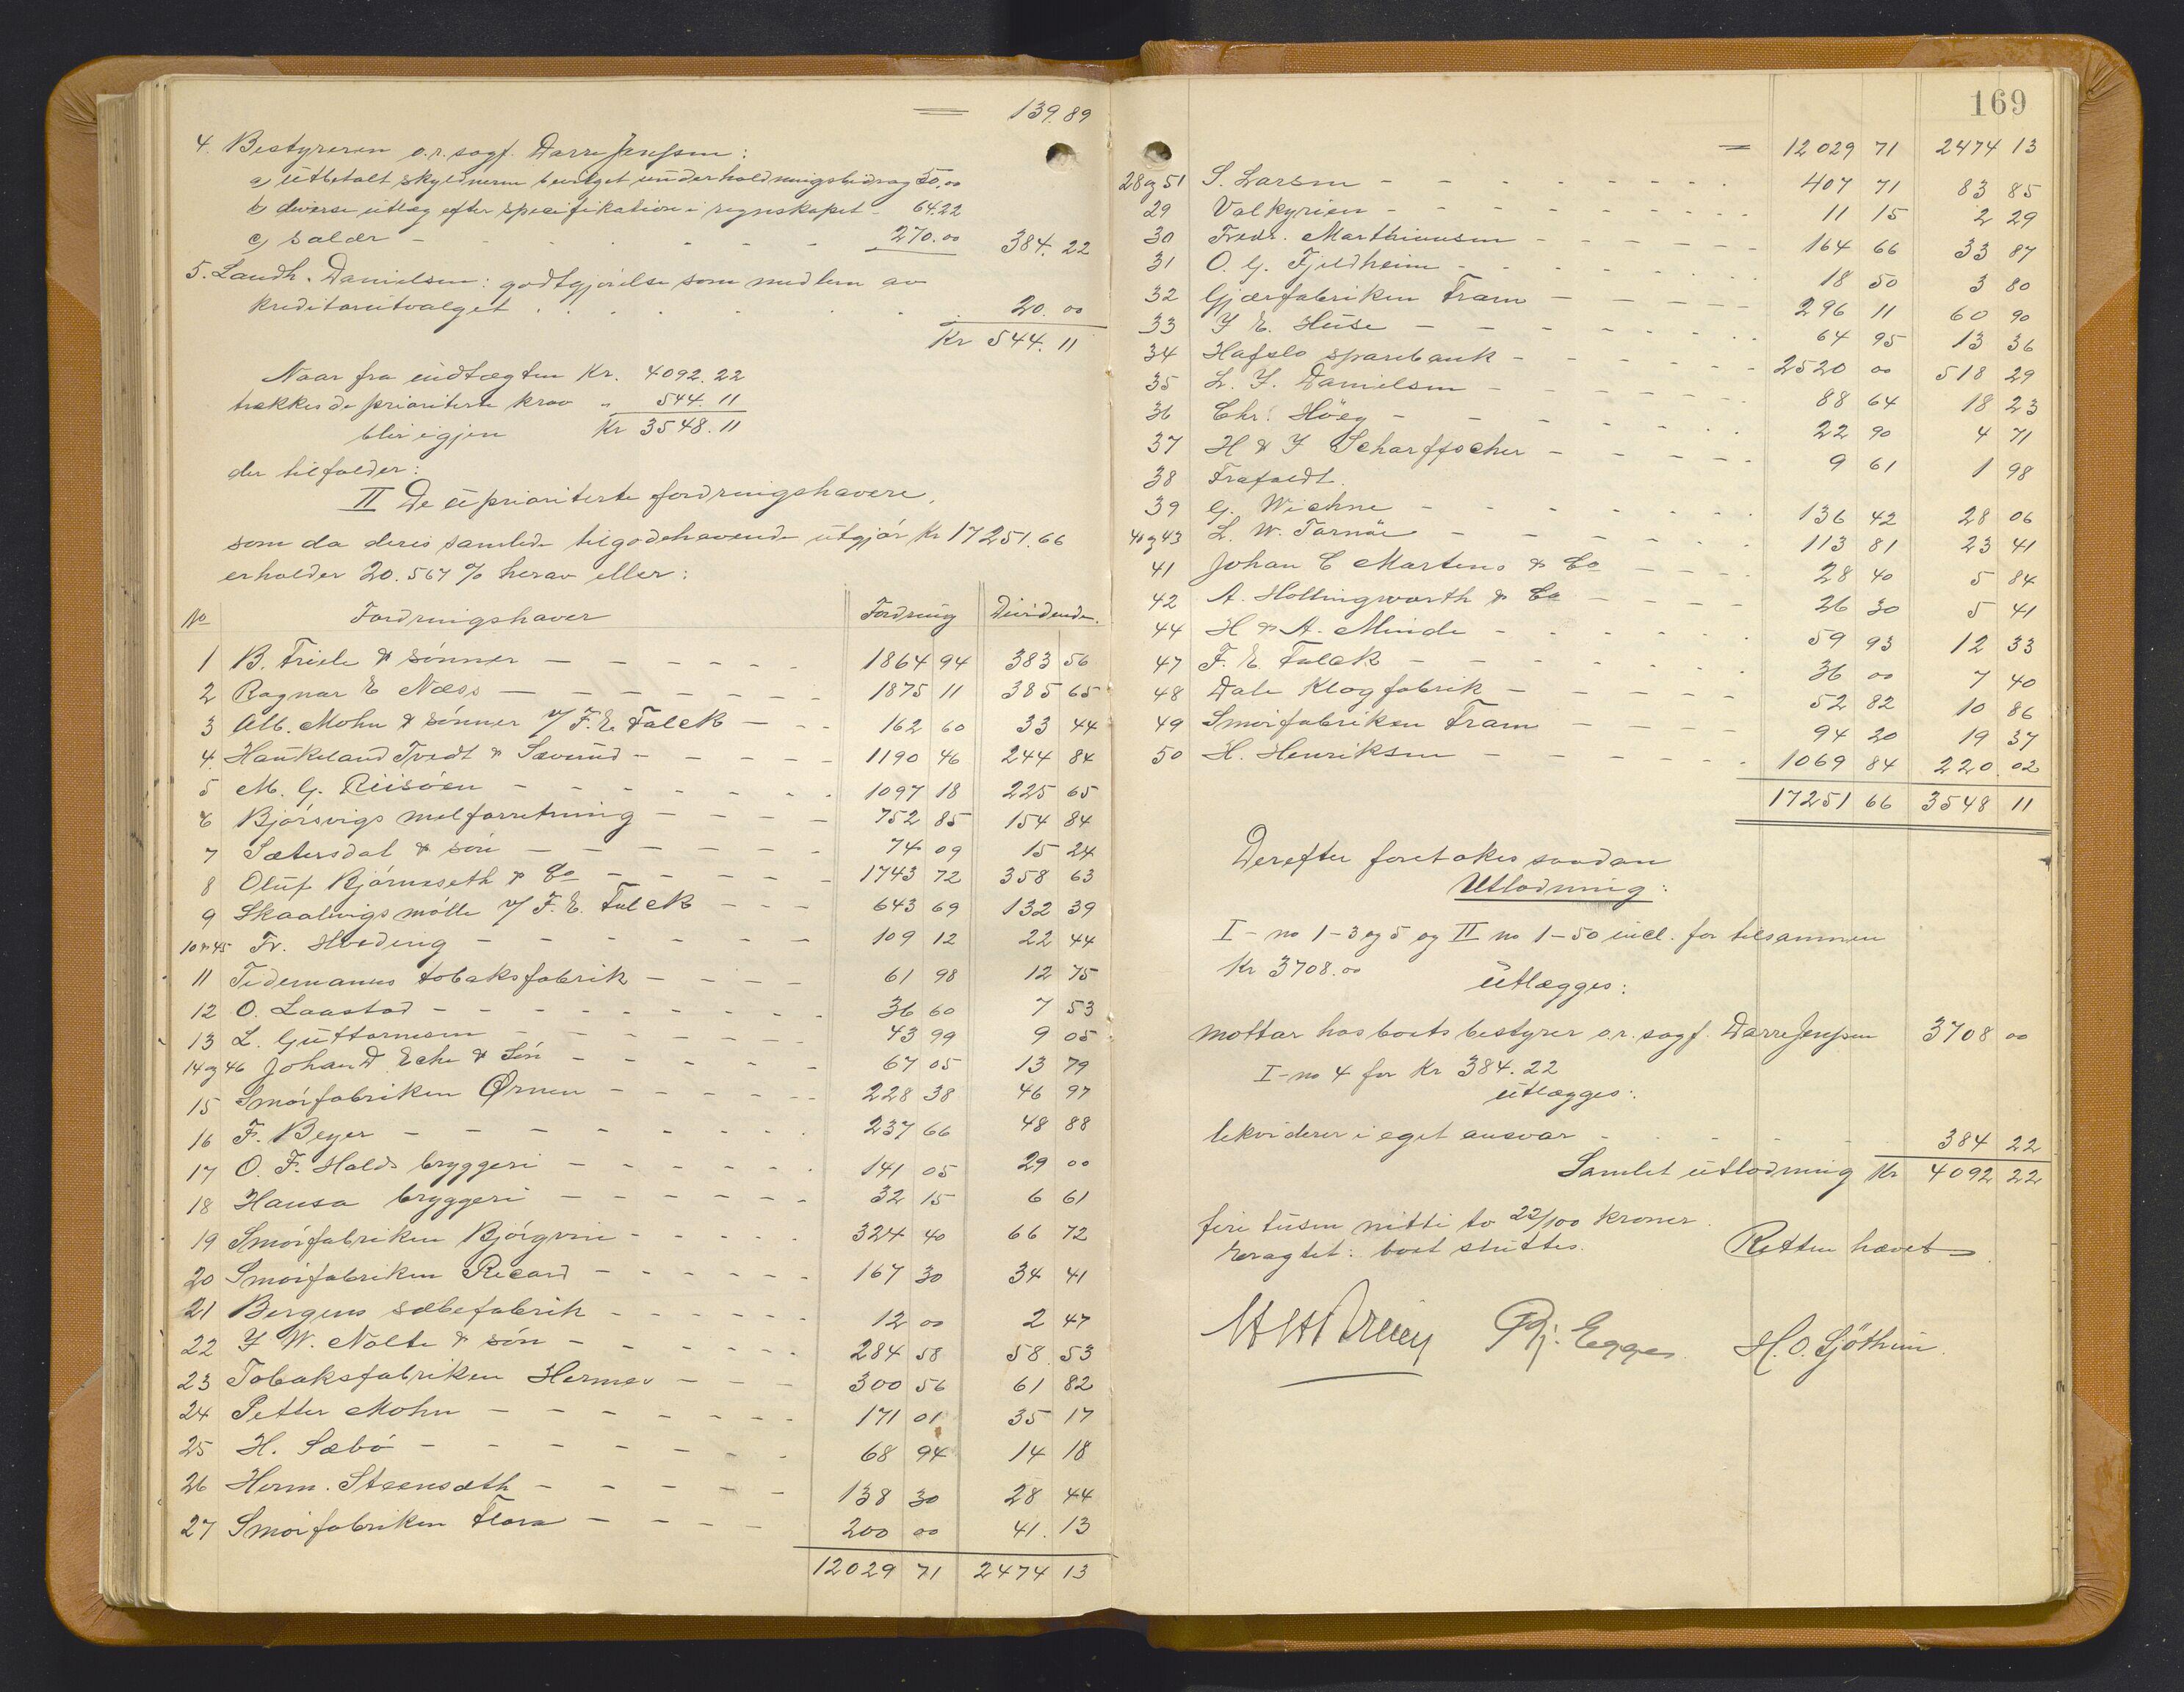 = 139.89
4. Bestyreren o.r.sagf. Darre Jenssen:
a) utbetalt skyldneren bevilget underholdningsbidrag 50.00
b) diverse utlæg efter specifikation i regnskapet - 64.22
c) salær - - - - - - 270.00 384.22
5. Landh. Danielsen: godtgjörelse som medlem av
kreditorutvalget . . . . . . 20.00
Kr 544.11
Naar fra indtægten Kr. 4092.22
trækkes de prioriterte krav " 544.11
blir igjen Kr 3548.11
der tilfalder:
II De uprioriterte fordringshavere,
som da deres samlede tilgodehavende utgjör Kr 17251.66
erholder 20.567 % herav eller:
No Fordringshaver Fordring Dividende.
1 B. Friele & sönner - - - - - 1864 94 383 56
2 Ragnar E Næss - - - - - - 1875 11 385 65
3 Alb. Mohn & sönner v/ F. E. Falck - - - 162 60 33 44
4. Haukeland Tvedt & Sævrud - - - - - 1190 46 244 84
5 M. G. Riisöen - - - - - - - 1097 18 225 65
6 Björsvigs melforretning - - - - 752 85 154 84
7 Sætersdal & sön - - - - - - 74 09 15 24
8 Oluf Björnseth & Co - - - - - 1743 72 358 63
9 Skaalvigs mölle v/ F. E. Falck - - - 643 69 132 39
10 & 45 Fr. Hveding - - - - - - 109 12 22 44
11 Tidemanns tobaksfabrik - - - - 61 98 12 75
12 O. Laastad - - - - - - - - 36 60 7 53
13 L. Guttormsen - - - - - - 43 99 9 05
14 og 46 Johan D. Behr & Sön - - - - - 67 05 13 79
15 Smörfabriken Örnen - - - - - 228 38 46 97
16 F. Beyer - - - - - - - 237 66 48 88
17 O. F. Holds bryggeri - - - - - - 141 05 29 00
18 Hansa bryggeri - - - - - - 32 15 6 61
19 Smörfabriken Björgvin - - - - - 324 40 66 72
20 Smörfabriken Record - - - - - - 167 30 34 41
21 Bergens sæbefabrik - - - - - - 12 00 2 47
22 J W. Nolte & sön - - - - - - 284 58 58 53
23 Tobaksfabriken Hermes - - - 300 56 61 82
24 Petter Mohn - - - - - - - 171 01 35 17
25 H. Sæbö - - - - - - - 68 94 14 18
26 Herm. Steensæth - - - - - 138 30 28 44
27 Smörfabriken Flora - - - - 200 00 41.13
12029 71 2474 13
169
= 12029 71 2474 13
28 og 51 S. Larsen - - - - - - - - 407 71 83 85
29 Valkyrien - - - - - - - - 11 15 2 29
30 Fredr. Marthinussen - - - - - - 164 66 33 87
31 O. G. Fjeldheim - - - - - - - 18 50 3 80
32 Gjærfabriken Fram - - - - - 296 11 60 90
33 J E. Huse - - - - - - - 64 95 13 36
34 Hafslo sparebank - - - - - - 2520 00 518 29
35 L. J. Danielsen - - - - - - 88 64 18 23
36 Chr. Höeg - - - - - - - 22 90 4 71
37 H & J Scharffscher - - - - - 9 61 1 98
38 Frafaldt.
39 G. Wichne - - - - - - - 136 42 28 06
40 og 43 L. W. Tornöe - - - - - - 113 81 23 41
41 Johan C Martens & Co - - - - 28 40 5 84
42 A. Hollingworth & Co - - - - 26 30 5 41
44 H & A. Minde - - - - - - 59 93 12 33
47 F. E. Falck - - - - - - - 36 00 7 40
48 Dale Klogfabrik - - - - - 52 82 10 86
49 Smörfabriken Fram - - - - 94 20 19 37
50 H. Henriksen - - - - - - 1069 84 220.02
17251 66 3548 11
Derefter foretokes saadan
Utlodning:
I - no 1-3 og 5 og II no 1-50 incl. for tilsammen
Kr 3708.00
utlægges:
mottar hos boets bestyrer o.r.sagf. Darre Jenssen 3708 00
I - no 4 for Kr 384.22
utlægges:
likviderer i eget ansvar - - - - - 384 22
Samlet utlodning Kr 4092 22
fire tusen nitti to 22/100 kroner.
Eragtet: boet sluttes. Retten hævet.
Egge H. O. Sjöthun.